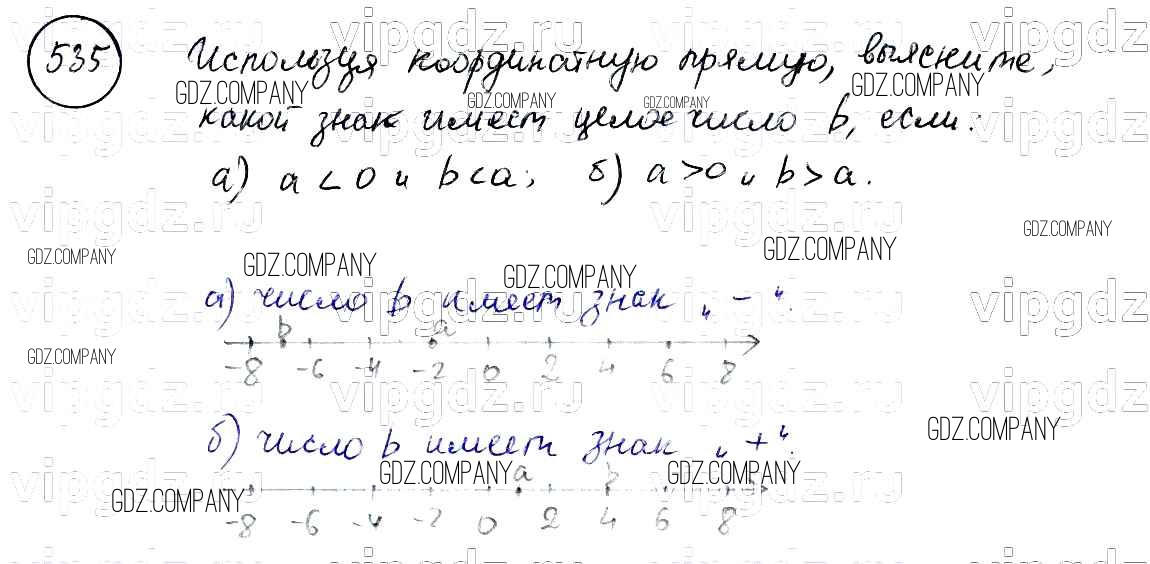 535 Используя координатную прямую, выясните,
какой знак имеет целое число b, если:
а) a < 0 и b < a; б) a > 0 и b > a.
а) число b имеет знак „ – “.
b a
-8 -6 -4 -2 0 2 4 6 8
б) число b имеет знак „ + “.
a b
-8 -6 -4 -2 0 2 4 6 8
vipgdz.ru
GDZ.COMPANY